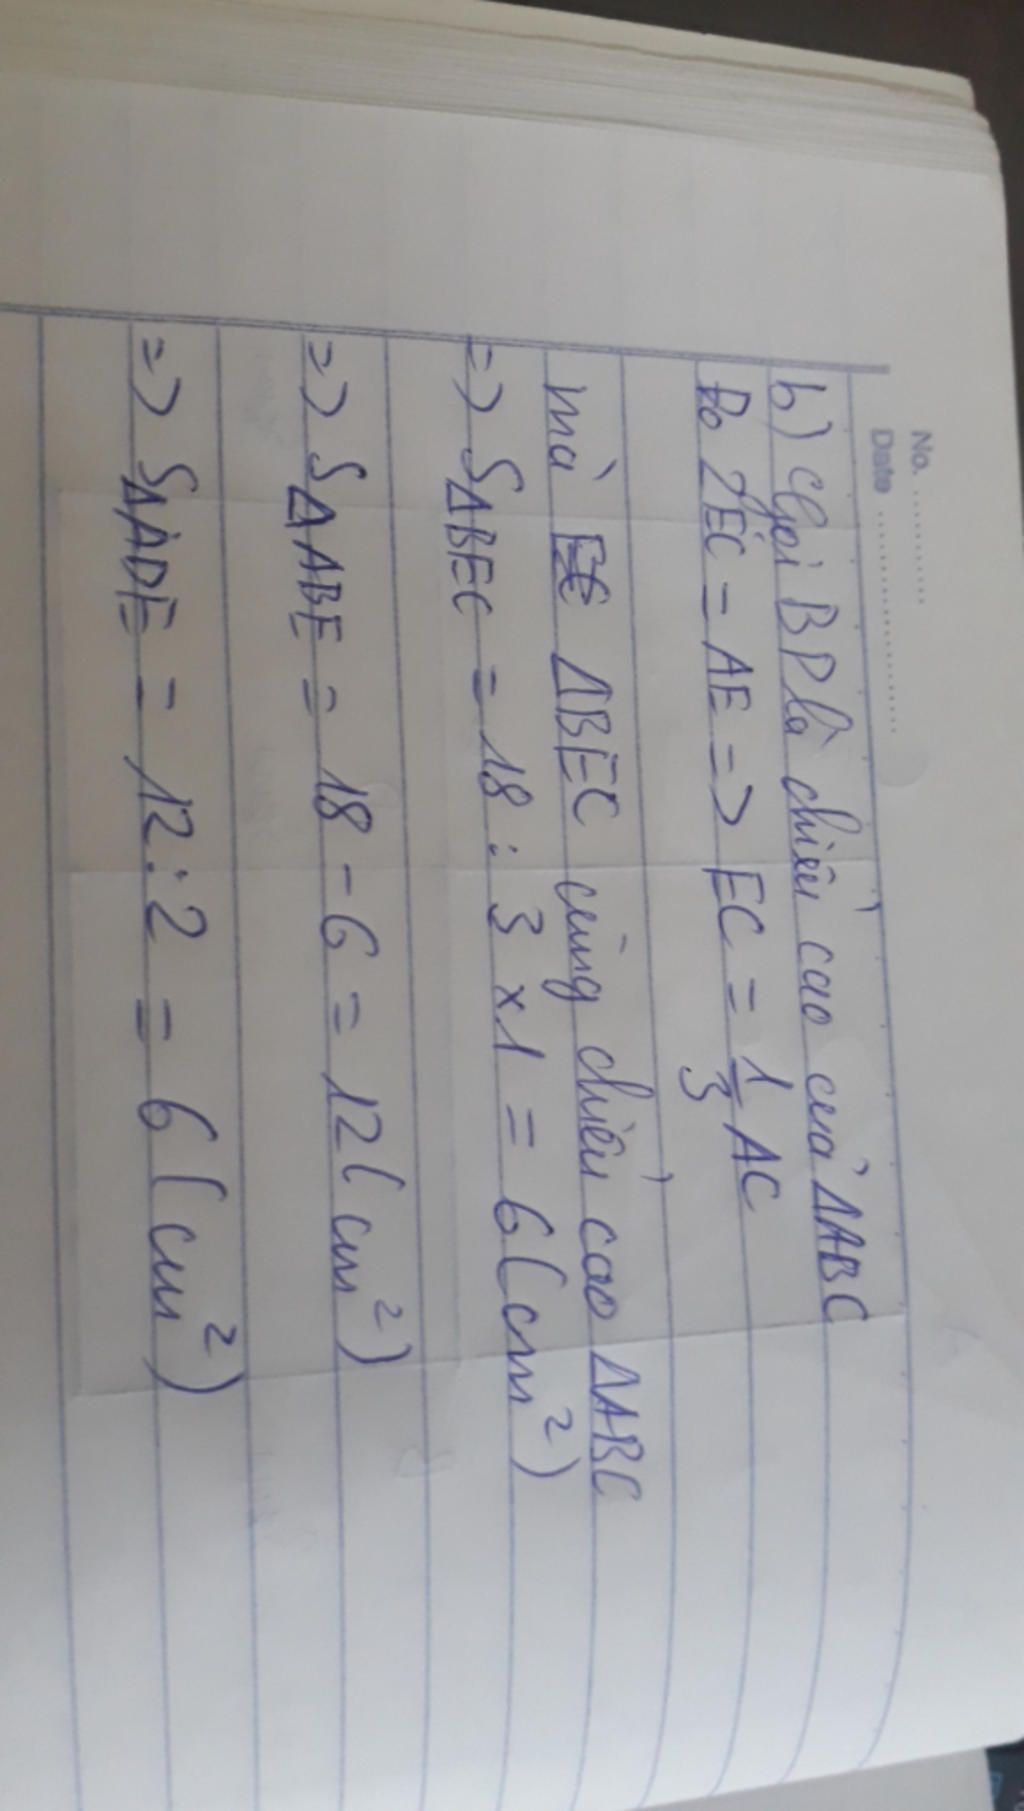 No. ............
Date ....................
b) Gọi BP là chiều cao của ΔABC
Do 2EC = AE => EC = 1/3 AC
mà ΔBEC cùng chiều cao ΔABC
=> SΔBEC = 18 : 3 x 1 = 6 (cm²)
=> SΔABE = 18 - 6 = 12 (cm²)
=> SΔADE = 12 : 2 = 6 (cm²)